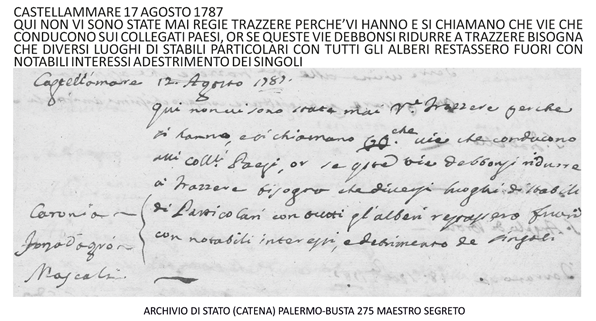 CASTELLAMMARE 17 AGOSTO 1787
QUI NON VI SONO STATE MAI REGIE TRAZZERE PERCHE'VI HANNO E SI CHIAMANO CHE VIE CHE
CONDUCONO SUI COLLEGATI PAESI, OR SE QUESTE VIE DEBBONSI RIDURRE A TRAZZERE BISOGNA
CHE DIVERSI LUOGHI DI STABILI PARTICOLARI CON TUTTI GLI ALBERI RESTASSERO FUORI CON
NOTABILI INTERESSI ADESTRIMENTO DEI SINGOLI
Castellamare 17. Agosto 1787.
qui non vi sono state mai Re. Trazzere perche
vi hanno, e si chiamano che vie che conducono
alli Paesi, or se vie debbonsi ridurre
a Trazzere bisogna che diversi luoghi di stabili
di Particolari con tutti gl'alberi restassero fuori
con notabili interessi, e detrimento de singoli
Caronia
Mascali
ARCHIVIO DI STATO (CATENA) PALERMO-BUSTA 275 MAESTRO SEGRETO